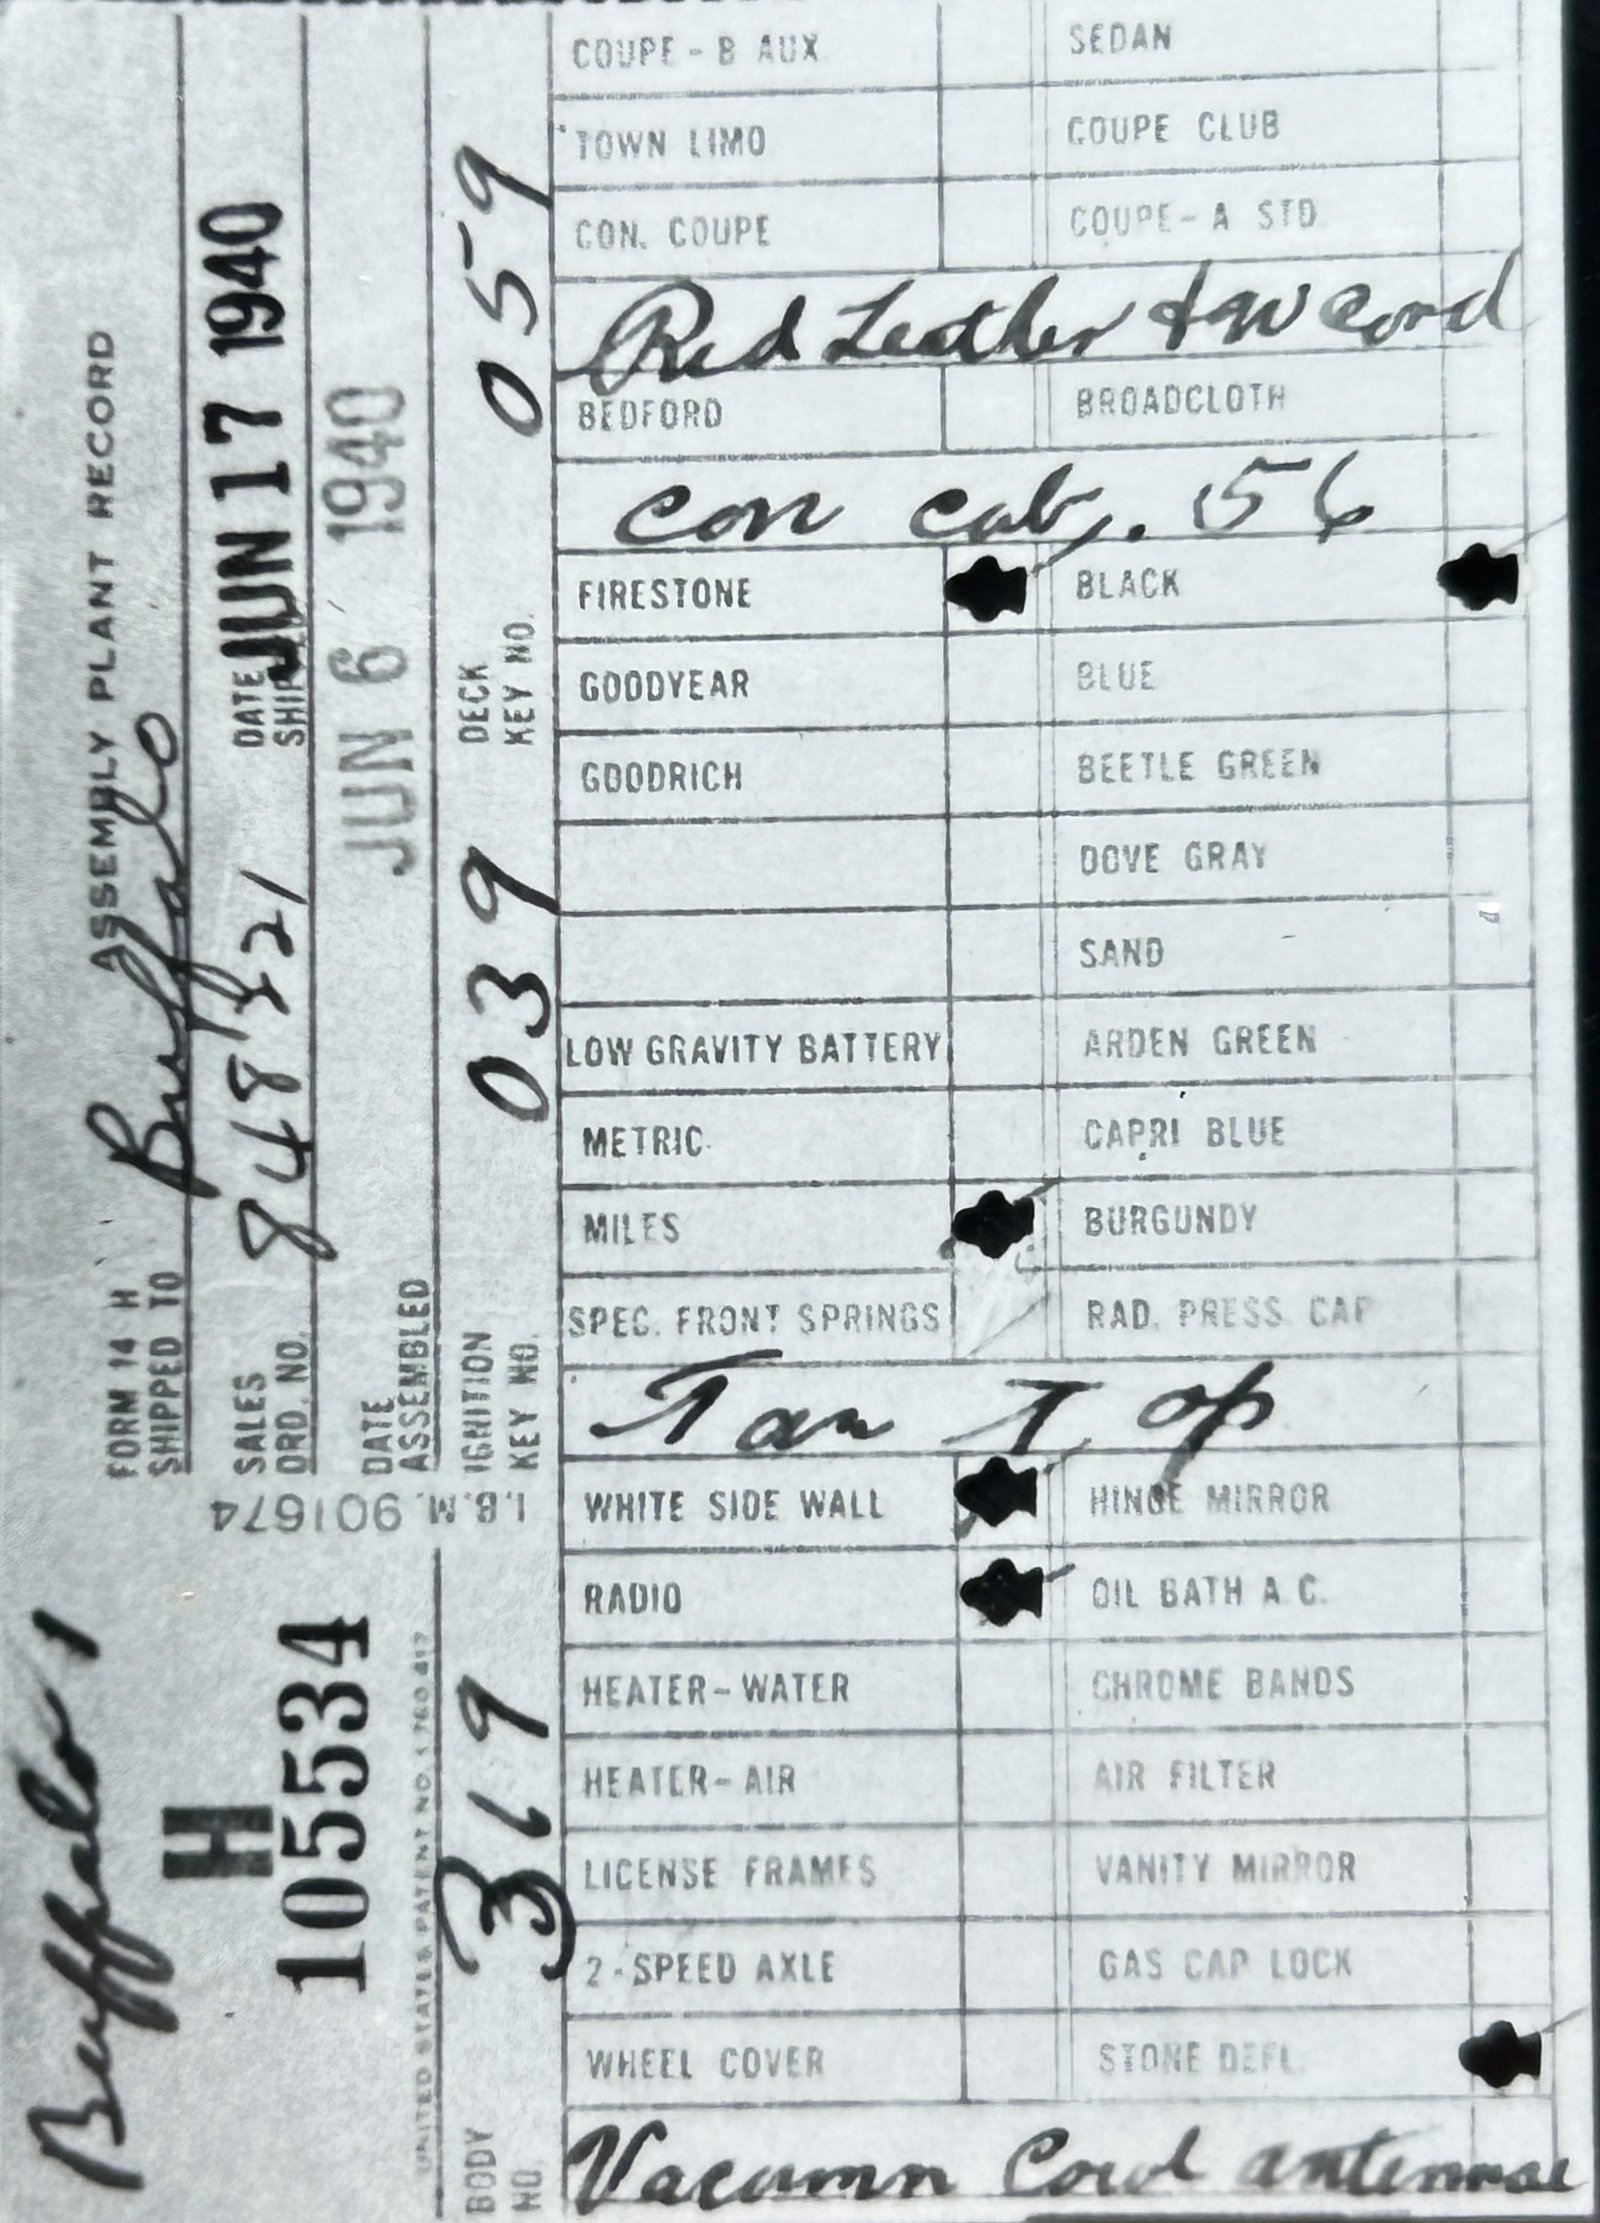 ASSEMBLY PLANT RECORD
FORM 14 H
SHIPPED TO Buffalo
SALES ORD. NO. 848321
DATE SHIPPED JUN 17 1940
DATE ASSEMBLED JUN 6 1940
IGNITION KEY NO. 039
DECK KEY NO. 059
I.B.M. 901674
Buffalo 1
H
10534
UNITED STATES PATENT NO. 1,780,817
BODY NO. 319
COUPE - B AUX SEDAN
TOWN LIMO COUPE CLUB
CON. COUPE COUPE - A STD
Red Leather & W Cord
BEDFORD BROADCLOTH
Con cab. 56
FIRESTONE BLACK
GOODYEAR BLUE
GOODRICH BEETLE GREEN
DOVE GRAY
SAND
LOW GRAVITY BATTERY ARDEN GREEN
METRIC CAPRI BLUE
MILES BURGUNDY
SPEC. FRONT SPRINGS RAD. PRESS. CAP
Tan Top
WHITE SIDE WALL HINGE MIRROR
RADIO OIL BATH A.C.
HEATER - WATER CHROME BANDS
HEATER - AIR AIR FILTER
LICENSE FRAMES VANITY MIRROR
2 - SPEED AXLE GAS CAP LOCK
WHEEL COVER STONE DEFL.
Vacumn Cowl antennae